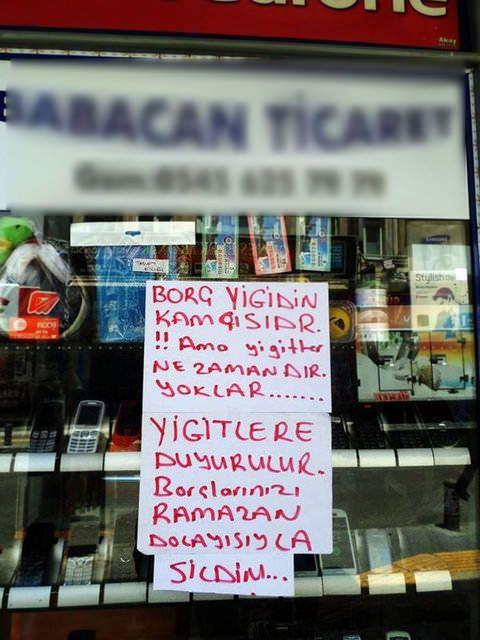 BABACAN TİCARET
BORÇ YİGİDİN
KAMÇISIDR.
!! Amo yigitler
NE ZAMANDIR.
YOKLAR.......
YİGİTLERE
DUYURULUR.
Borçlarınızı
RAMAZAN
DOLAYISIYLA
SİLDİM...
SAMSUNG